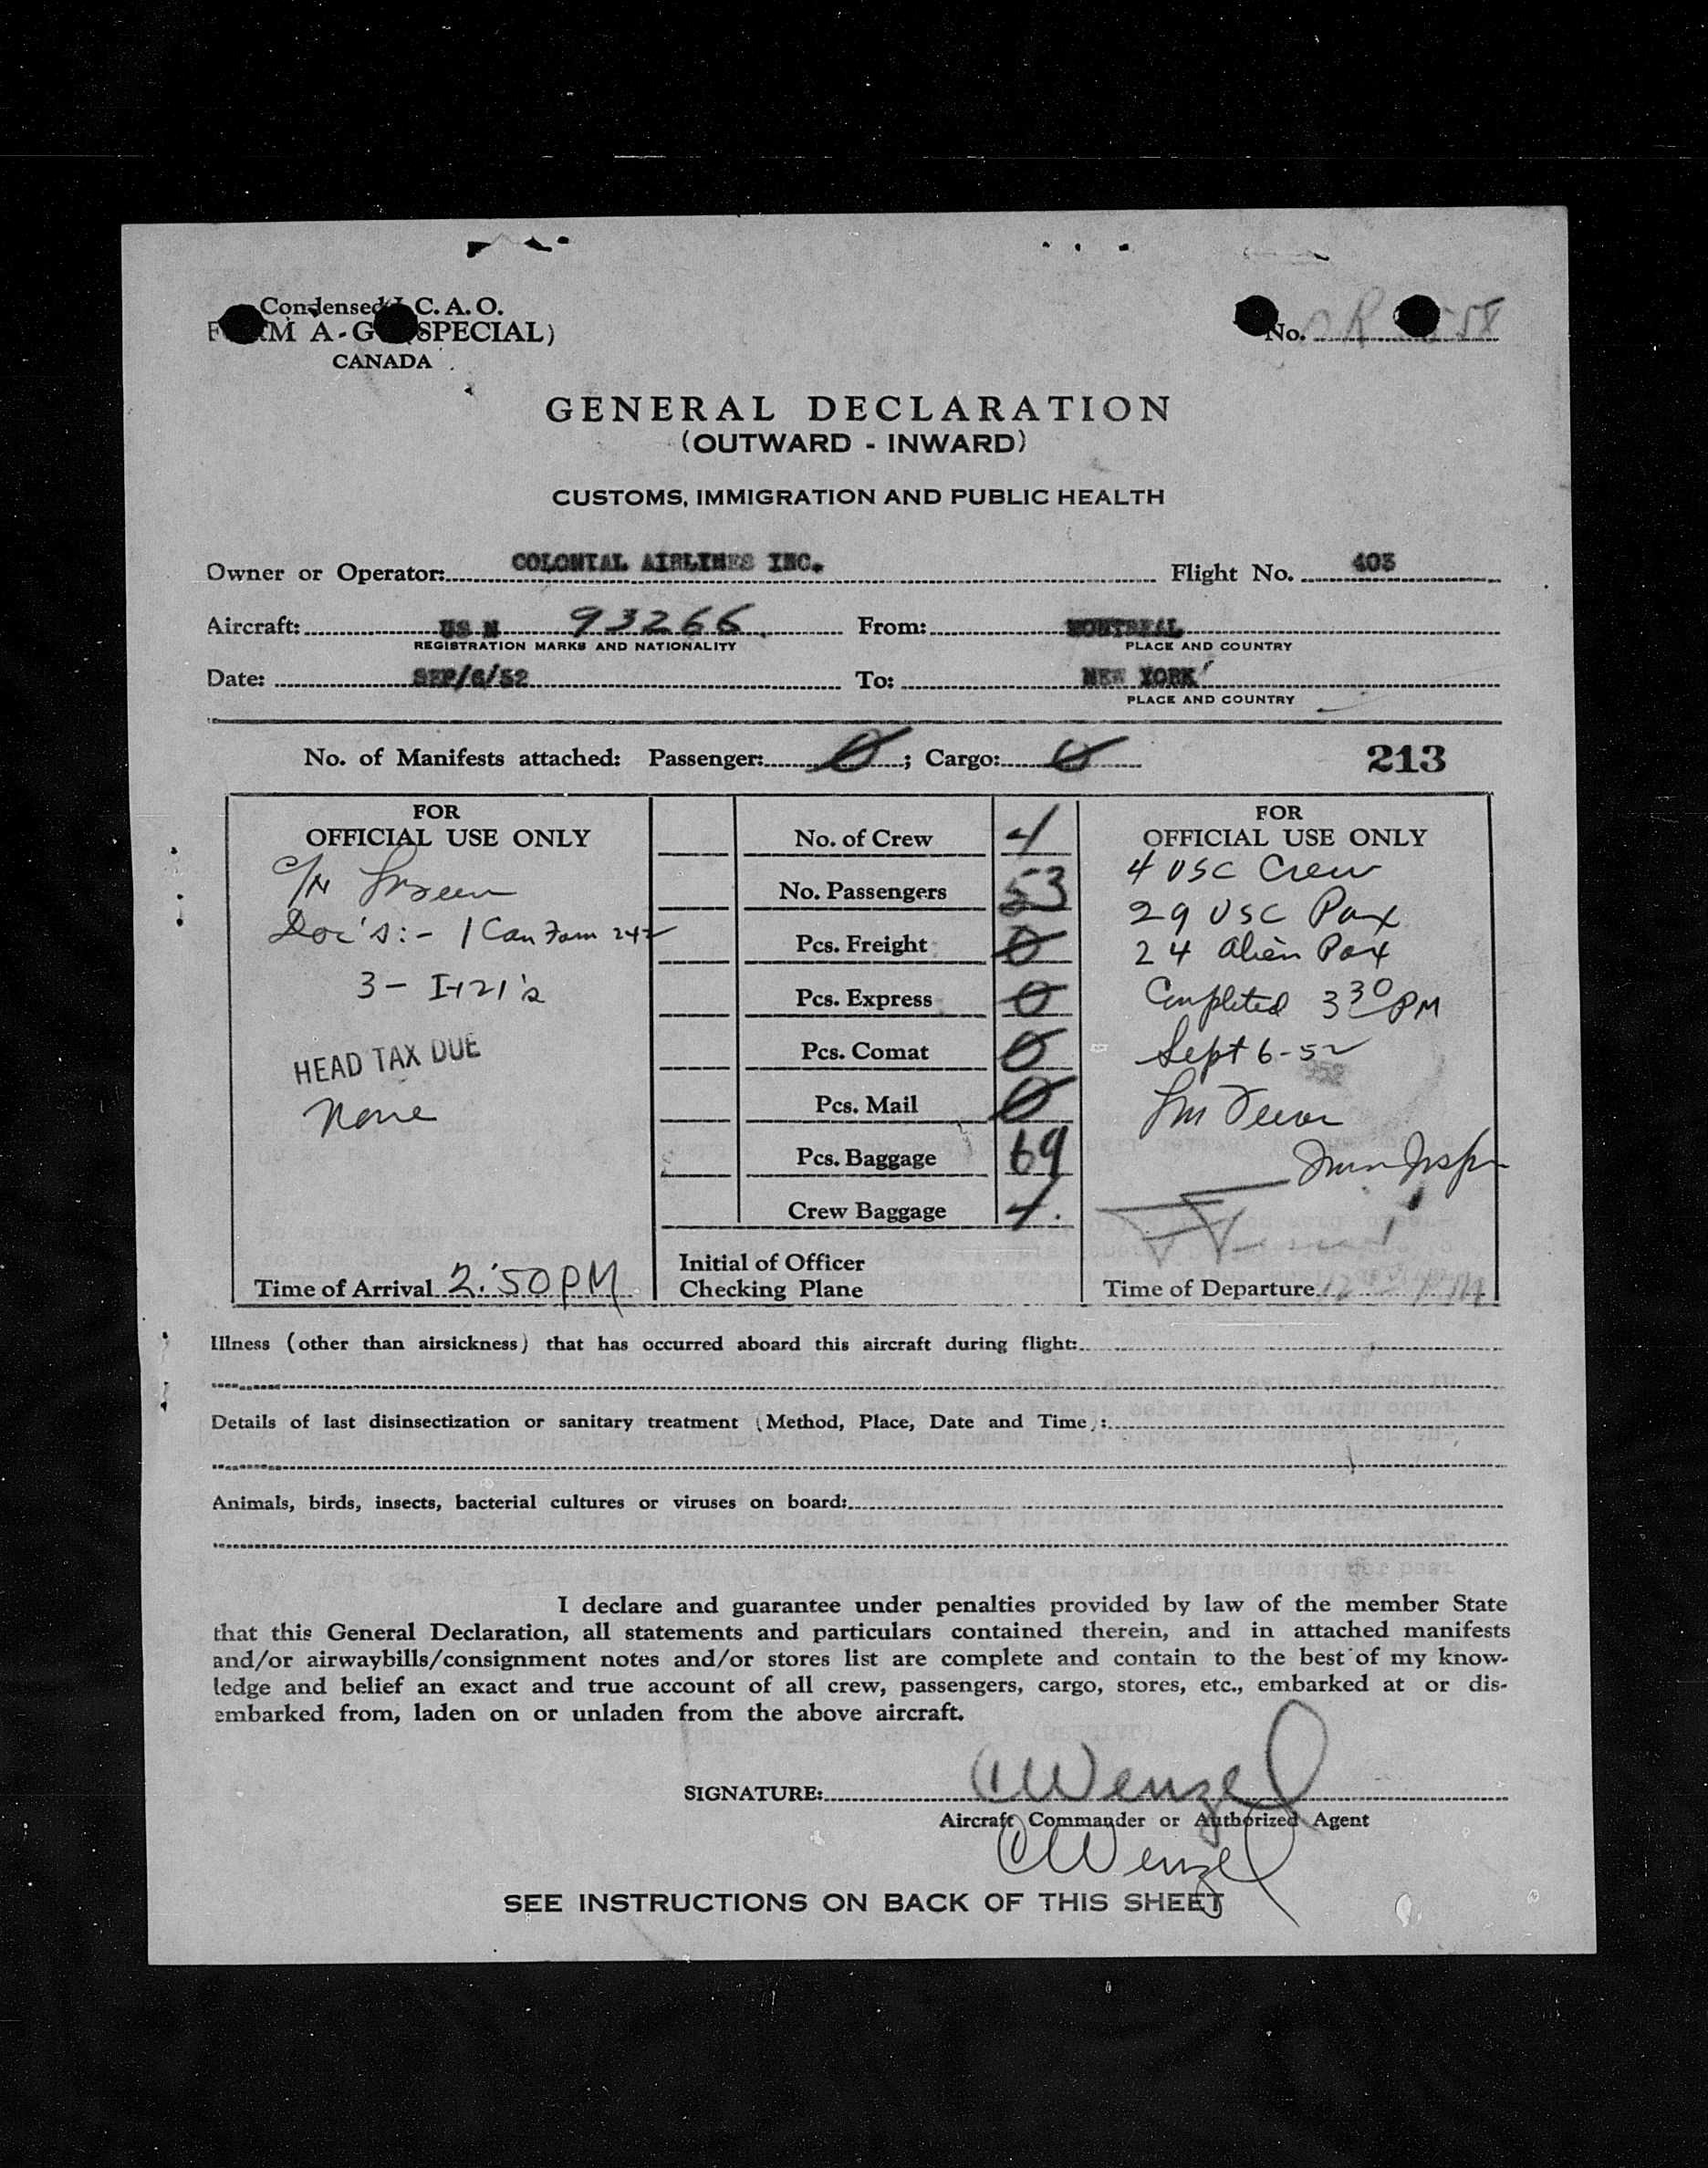 Condensed I. C. A. O.
FORM A-G (SPECIAL)
CANADA
No.
GENERAL DECLARATION
(OUTWARD - INWARD)
CUSTOMS, IMMIGRATION AND PUBLIC HEALTH
Owner or Operator: COLONIAL AIRLINES INC. Flight No. 403
Aircraft: US N 93266 From: MONTREAL
REGISTRATION MARKS AND NATIONALITY PLACE AND COUNTRY
Date: SEP/6/52 To: NEW YORK
PLACE AND COUNTRY
No. of Manifests attached: Passenger: 0 ; Cargo: 0 213
FOR
OFFICIAL USE ONLY
C/N
Doc's:- 1 Can Form 242
3- I-121's
HEAD TAX DUE
None
Time of Arrival 2:50 PM
No. of Crew 4
No. Passengers 53
Pcs. Freight 0
Pcs. Express 0
Pcs. Comat 0
Pcs. Mail 0
Pcs. Baggage 69
Crew Baggage 4.
Initial of Officer
Checking Plane
FOR
OFFICIAL USE ONLY
4 USC Crew
29 USC Pax
24 Alien Pax
Completed 3 30 PM
Sept 6-52
Imm Insp
Time of Departure
Illness (other than airsickness) that has occurred aboard this aircraft during flight:
Details of last disinsectization or sanitary treatment (Method, Place, Date and Time):
Animals, birds, insects, bacterial cultures or viruses on board:
I declare and guarantee under penalties provided by law of the member State
that this General Declaration, all statements and particulars contained therein, and in attached manifests
and/or airwaybills/consignment notes and/or stores list are complete and contain to the best of my know-
ledge and belief an exact and true account of all crew, passengers, cargo, stores, etc., embarked at or dis-
embarked from, laden on or unladen from the above aircraft.
SIGNATURE: CWenzel
Aircraft Commander or Authorized Agent
CWenzel
SEE INSTRUCTIONS ON BACK OF THIS SHEET